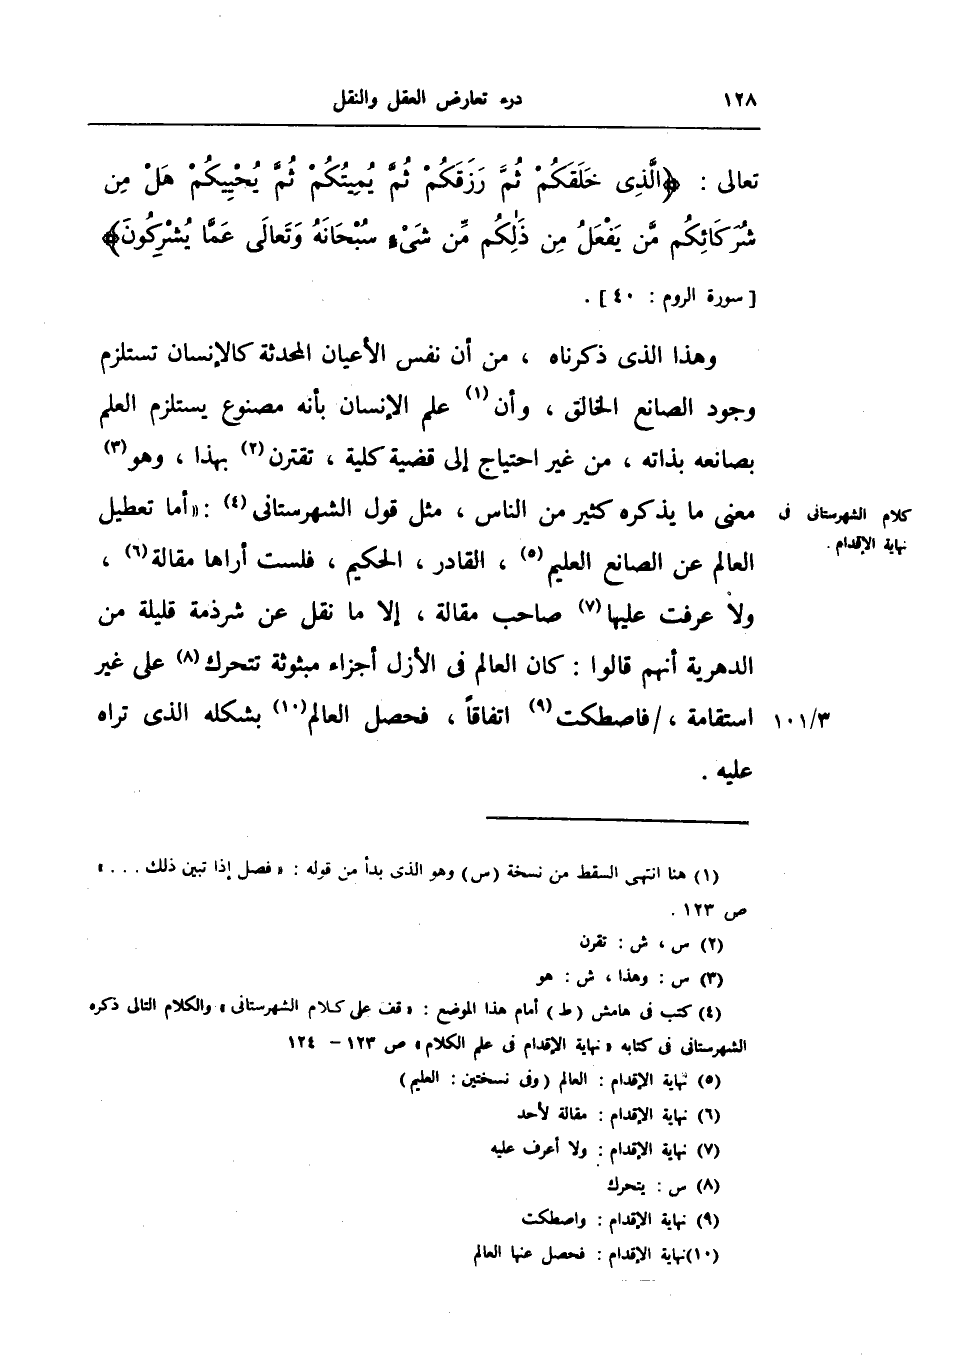 ١٢٨ درء تعارض العقل والنقل
تعالى : ﴿الَّذِى خَلَقَكُمْ ثُمَّ رَزَقَكُمْ ثُمَّ يُمِيتُكُمْ ثُمَّ يُحْيِيكُمْ هَلْ مِن
شُرَكَائِكُم مَّن يَفْعَلُ مِن ذَٰلِكُم مِّن شَىْءٍ سُبْحَانَهُ وَتَعَالَى عَمَّا يُشْرِكُونَ﴾
[ سورة الروم : ٤٠ ] .
وهذا الذى ذكرناه ، من أن نفس الأعيان المحدثة كالإنسان تستلزم
وجود الصانع الخالق ، وأن(١) علم الإنسان بأنه مصنوع يستلزم العلم
بصانعه بذاته ، من غير احتياج إلى قضية كلية ، تقترن(٢) بهذا ، وهو(٣)
معنى ما يذكره كثير من الناس ، مثل قول الشهرستانى(٤) : «أما تعطيل
كلام الشهرستانى فى
نهاية الإقدام .
العالم عن الصانع العليم(٥) ، القادر ، الحكيم ، فلست أراها مقالة(٦) ،
ولا عرفت عليها(٧) صاحب مقالة ، إلا ما نقل عن شرذمة قليلة من
الدهرية أنهم قالوا : كان العالم فى الأزل أجزاء مبثوثة تتحرك(٨) على غير
استقامة ، /فاصطكت(٩) اتفاقاً ، فحصل العالم(١٠) بشكله الذى تراه
١٠١/٣
عليه .
(١) هنا انتهى السقط من نسخة (س) وهو الذى بدأ من قوله : « فصل إذا تبين ذلك . . . »
ص ١٢٣ .
(٢) س ، ش : تقرن
(٣) س : وهذا ، ش : هو
(٤) كتب فى هامش ( ط ) أمام هذا الموضع : « قف على كلام الشهرستانى » والكلام التالى ذكره
الشهرستانى فى كتابه « نهاية الإقدام فى علم الكلام » ص ١٢٣ – ١٢٤
(٥) نهاية الإقدام : العالم ( وفى نسختين : العليم )
(٦) نهاية الإقدام : مقالة لأحد
(٧) نهاية الإقدام : ولا أعرف عليه
(٨) س : يتحرك
(٩) نهاية الإقدام : واصطكت
(١٠)نهاية الإقدام : فحصل عنها العالم